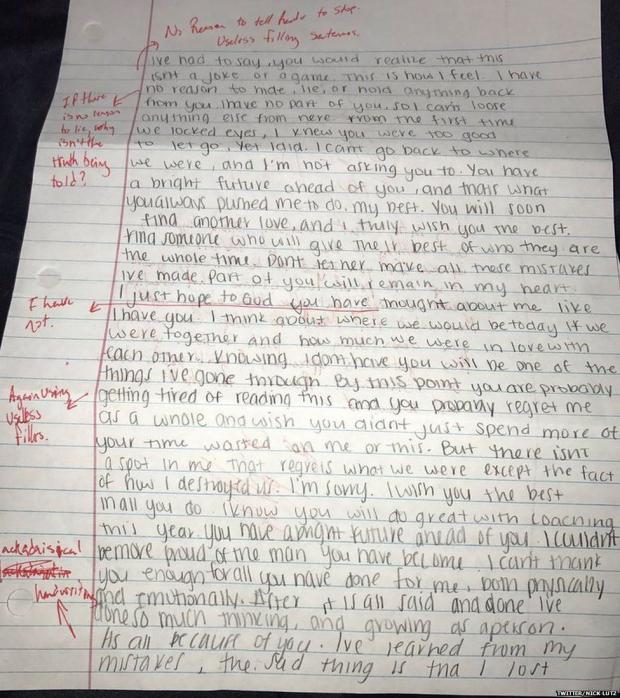 No Reason to tell reader to stop.
Useless filling sentences.
ive had to say, you would realize that this
isnt a joke, or a game. This is how I feel. I have
no reason to hide, lie, or hold anything back
from you. I have no part of you, so I can't loose
anything else from here. From the first time
we locked eyes, I knew you were too good
to let go. Yet I did. I can't go back to where
we were, and I'm not asking you to. You have
a bright future ahead of you, and thats what
you always pushed me to do, my best. You will soon
find another love, and i truly wish you the best.
Find someone who will give their best of who they are
the whole time. Dont let her make all these mistakes
ive made. Part of you will remain in my heart.
I just hope to God you have thought about me like
I have you. I think about where we would be today if we
were together and how much we were in love with
each other. Knowing I dont have you will be one of the
things I've gone through. By this point you are probably
getting tired of reading this and you probably regret me
as a whole and wish you didn't just spend more of
your time wasted on me or this. But there isnt
a spot in me that regrets what we were except the fact
of how I destroyed us. I'm sorry. I wish you the best
in all you do. I know you will do great with coaching
this year. You have a bright future ahead of you. I couldn't
be more proud of the man you have become. I can't thank
you enough for all you have done for me, both physically
and Emotionally. After it is all said and done Ive
done so much thinking, and growing as a person.
Its all because of you. I've learned from my
mistakes, the sad thing is tha I lost
If there
is no reason
to lie, why
isn't the
truth being
told?
I have
not.
Again using
useless
fillers.
handwriting
TWITTER/NICK LUTZ